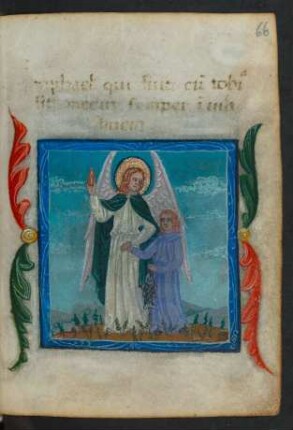 66
raphael qui fuit cū tobi
sit mecum semper ī uia